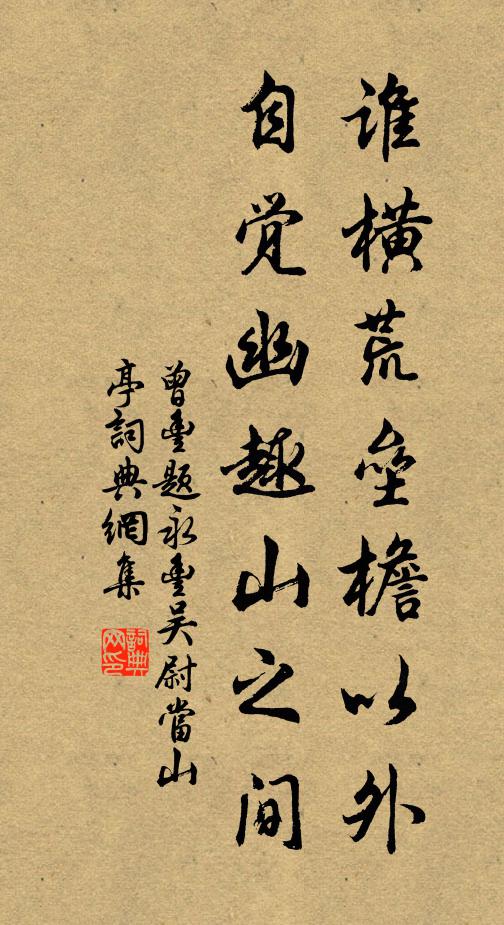 谁橫荒壘檐以外
自觉幽趣山之间
曾豊题永豊吴尉當山
亭詞典網集
詞典网印